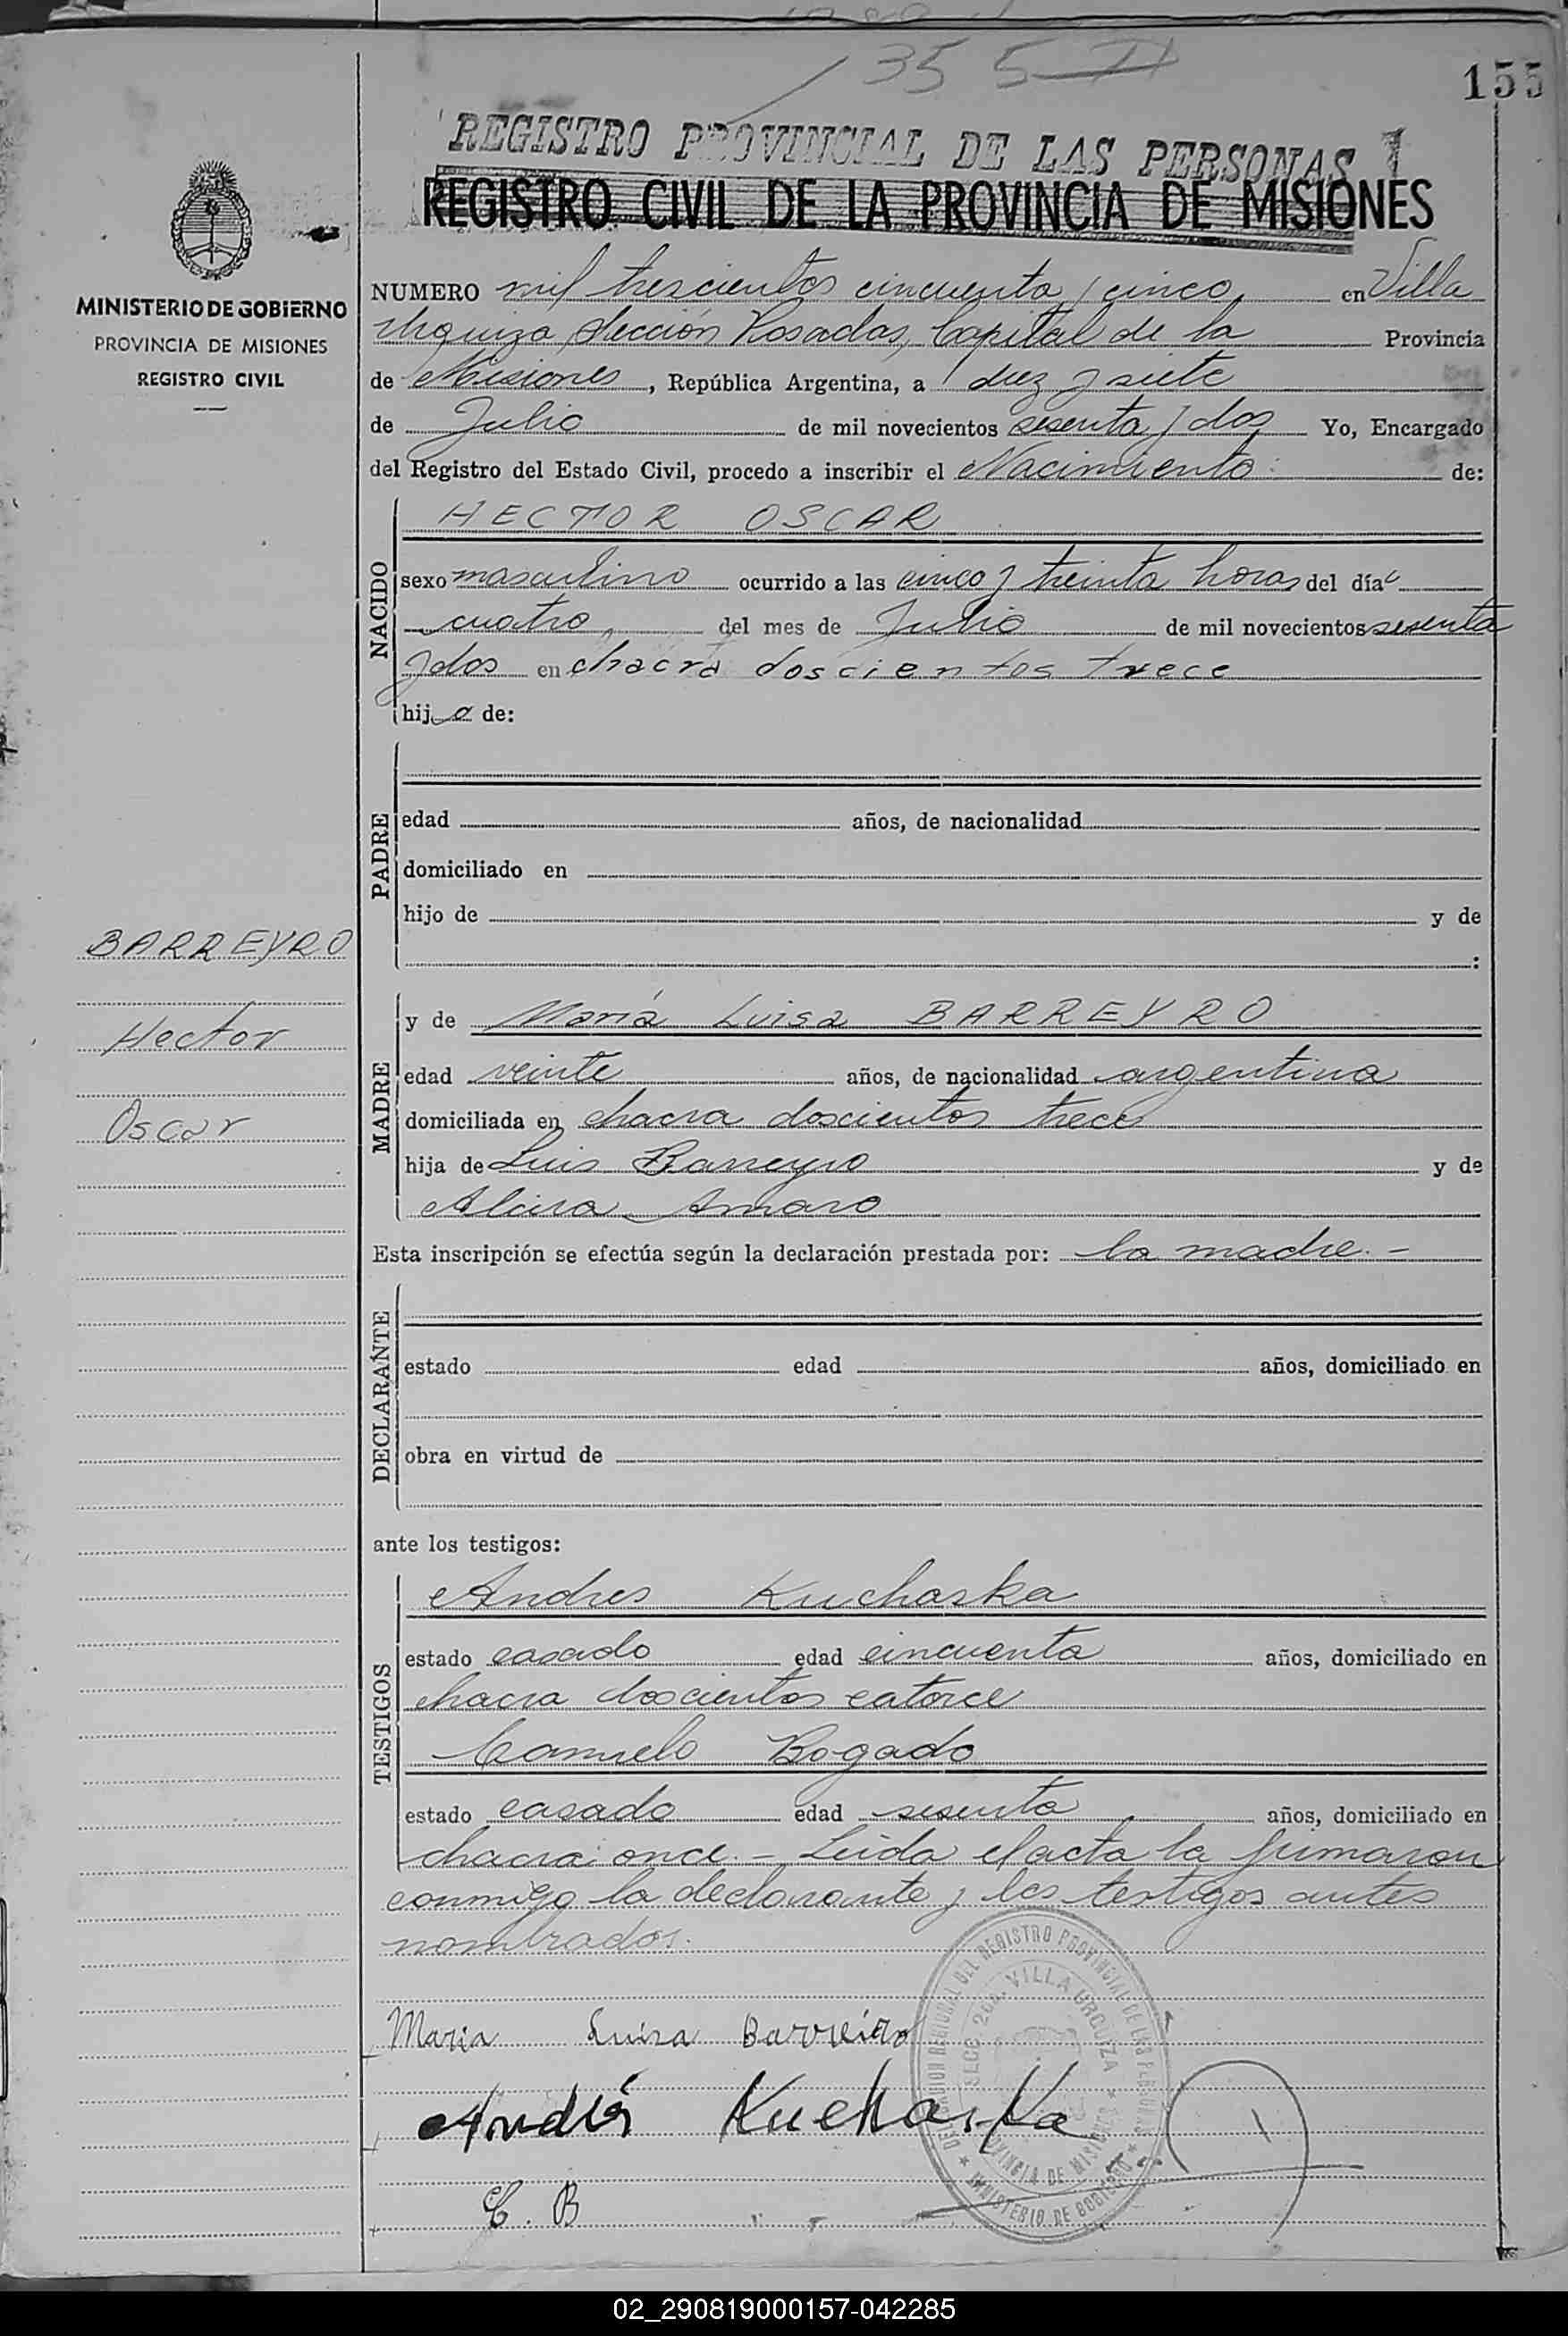 1355 II
155
REGISTRO PROVINCIAL DE LAS PERSONAS
REGISTRO CIVIL DE LA PROVINCIA DE MISIONES
MINISTERIO DE GOBIERNO
PROVINCIA DE MISIONES
REGISTRO CIVIL
NUMERO mil trescientos cincuenta y cinco, en Villa
Urquiza Sección Posadas, Capital de la Provincia
de Misiones, República Argentina, a diez y siete
de Julio de mil novecientos sesenta y dos Yo, Encargado
del Registro del Estado Civil, procedo a inscribir el Nacimiento de:
NACIDO
HECTOR OSCAR
sexo masculino ocurrido a las cinco y treinta horas del día
cuatro, del mes de Julio de mil novecientos sesenta
y dos en chacra doscientos trece
hijo de:
PADRE
edad años, de nacionalidad
domiciliado en
hijo de y de
:
BARREYRO
Hector
Oscar
MADRE
y de María Luisa BARREYRO
edad veinte años, de nacionalidad argentina
domiciliada en chacra doscientos trece
hija de Luis Barreyro y de
Alcira Amaro
Esta inscripción se efectúa según la declaración prestada por: la madre.-
DECLARANTE
estado edad años, domiciliado en
obra en virtud de
ante los testigos:
TESTIGOS
Andres Kuchaska
estado casado edad cincuenta años, domiciliado en
chacra doscientos catorce
Camuelo Bogado
estado casado edad sesenta años, domiciliado en
chacra once.- Leida el acta la firmaron
conmigo la declarante y los testigos antes
nombrados.
DELEGACION REGIONAL DEL REGISTRO PROVINCIAL DE LAS PERSONAS
SECC. 2da. VILLA URQUIZA
PROVINCIA DE MISIONES
MINISTERIO DE GOBIERNO
Maria Luisa Barreiro
Andrés Kuchaska
C. B
02_290819000157-042285